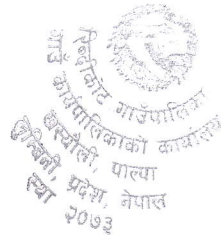 रिब्दीकोट गाउँपालिका
गाउँ कार्यपालिकाको कार्यालय
खस्यौली, पाल्पा
लुम्बिनी प्रदेश, नेपाल
स्था २०७३